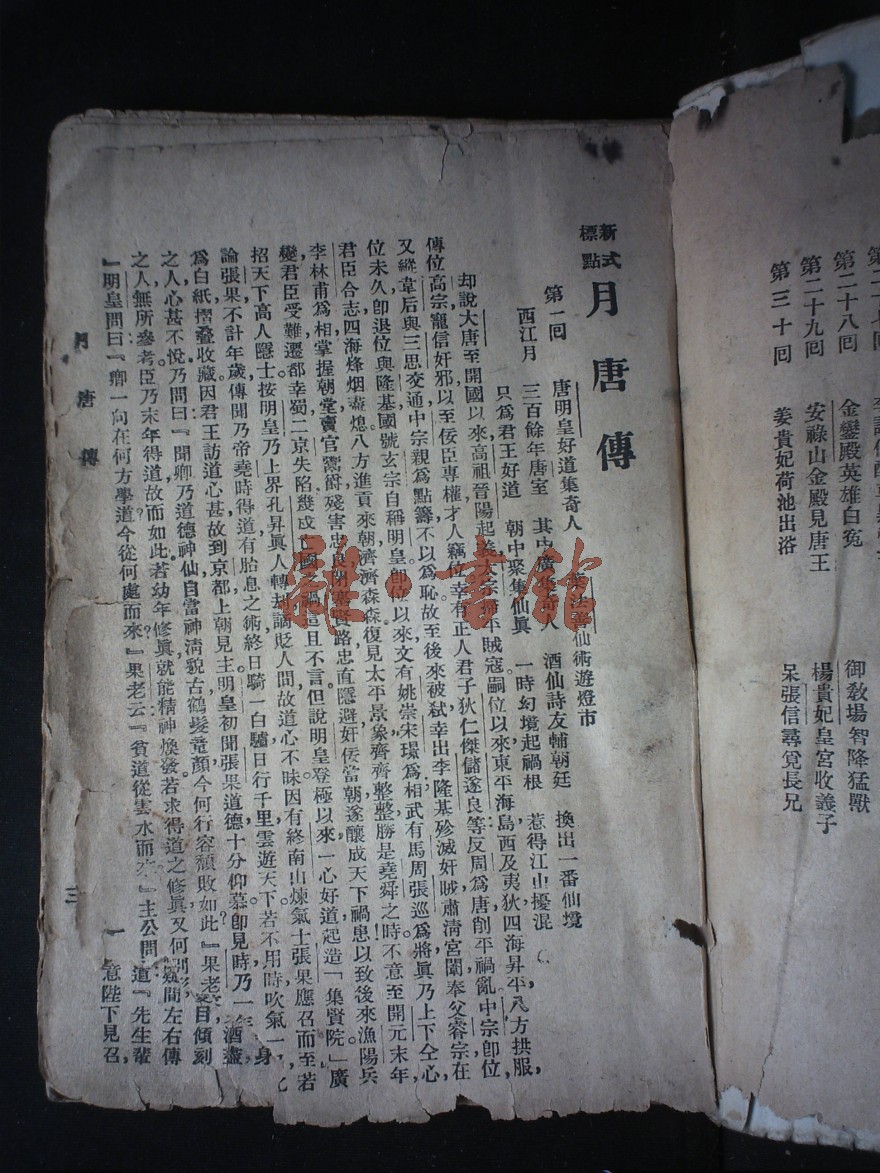 第二十八回　金鑾殿英雄白冤　御敎場智降猛獸
第二十九回　安祿山金殿見唐王　楊貴妃皇宮收義子
第三十回　姜貴妃荷池出浴　呆張信尋覓長兄
新式標點　月唐傳
第一回　唐明皇好道集奇人　葉法善仙術遊燈市
西江月　三百餘年唐室　其中廣集奇人　酒仙詩友輔朝廷　換出一番仙境
只爲君王好道　朝中聚集仙眞　一時幻境起禍根　惹得江山擾混
却說大唐至開國以來，高祖晉陽起義，太宗掃平賊寇，嗣位以來，東平海島，西及夷狄，四海昇平，八方拱服，
傳位高宗，寵信奸邪，以至佞臣專權，才人竊位，幸有正人君子狄仁傑儲遂良等，反周爲唐，削平禍亂，中宗卽位，
又縱韋后與三思交通，中宗親爲點籌，不以爲恥，故至後來被弒，幸出李隆基殄滅奸賊，肅清宮闈，奉父睿宗在
位未久，卽退位與隆基，國號玄宗，自稱明皇。卽位以來，文有姚崇宋璟爲相，武有馬周張巡爲將，眞乃上下仝心，
君臣合志，四海烽烟盡熄，八方進貢來朝，濟濟森森，復見太平景象，齊齊整整，勝是堯舜之時！不意至開元末年，
李林甫爲相，掌握朝堂，賣官鬻爵，殘害忠良，閉塞賢路，忠直隱避，奸佞當朝，遂釀成天下禍患，以致後來漁陽兵
變，君臣受難，遷都幸蜀，二京失陷，幾成亡國之禍，這且不言。但說明皇登極以來，一心好道，起造「集賢院」，廣
招天下高人隱士，按明皇乃上界孔昇眞人轉劫，謫貶人間，故道心不昧，因有終南山煉氣士張果應召而至，若
論張果不計年歲，傳聞乃帝堯時得道，有胎息之術，終日騎一白驢，日行千里，雲遊天下，若不用時，吹氣一　化
爲白紙，摺疊收藏，因君王訪道心甚，故到京都，上朝見主，明皇初聞張果道德，十分仰慕，卽見時，乃一　身
之人，心甚不悅，乃問曰：『聞卿乃道德神仙，自當神清貌古，鶴髮童顏，今何行容頹敗如此？』果老　酒盡
之人，無所參考，臣乃末年得道，故而如此，若幼年修眞，就能精神煥發，若求得道之修眞，又何　目傾刻
』明皇問曰：『卿一向在何方學道？今從何處而來？』果老云：『貧道從雲水而來。』主公問　疑間左右傳
道：『先生輩
一
意陛下見召，
月唐傳
三
雜·書館